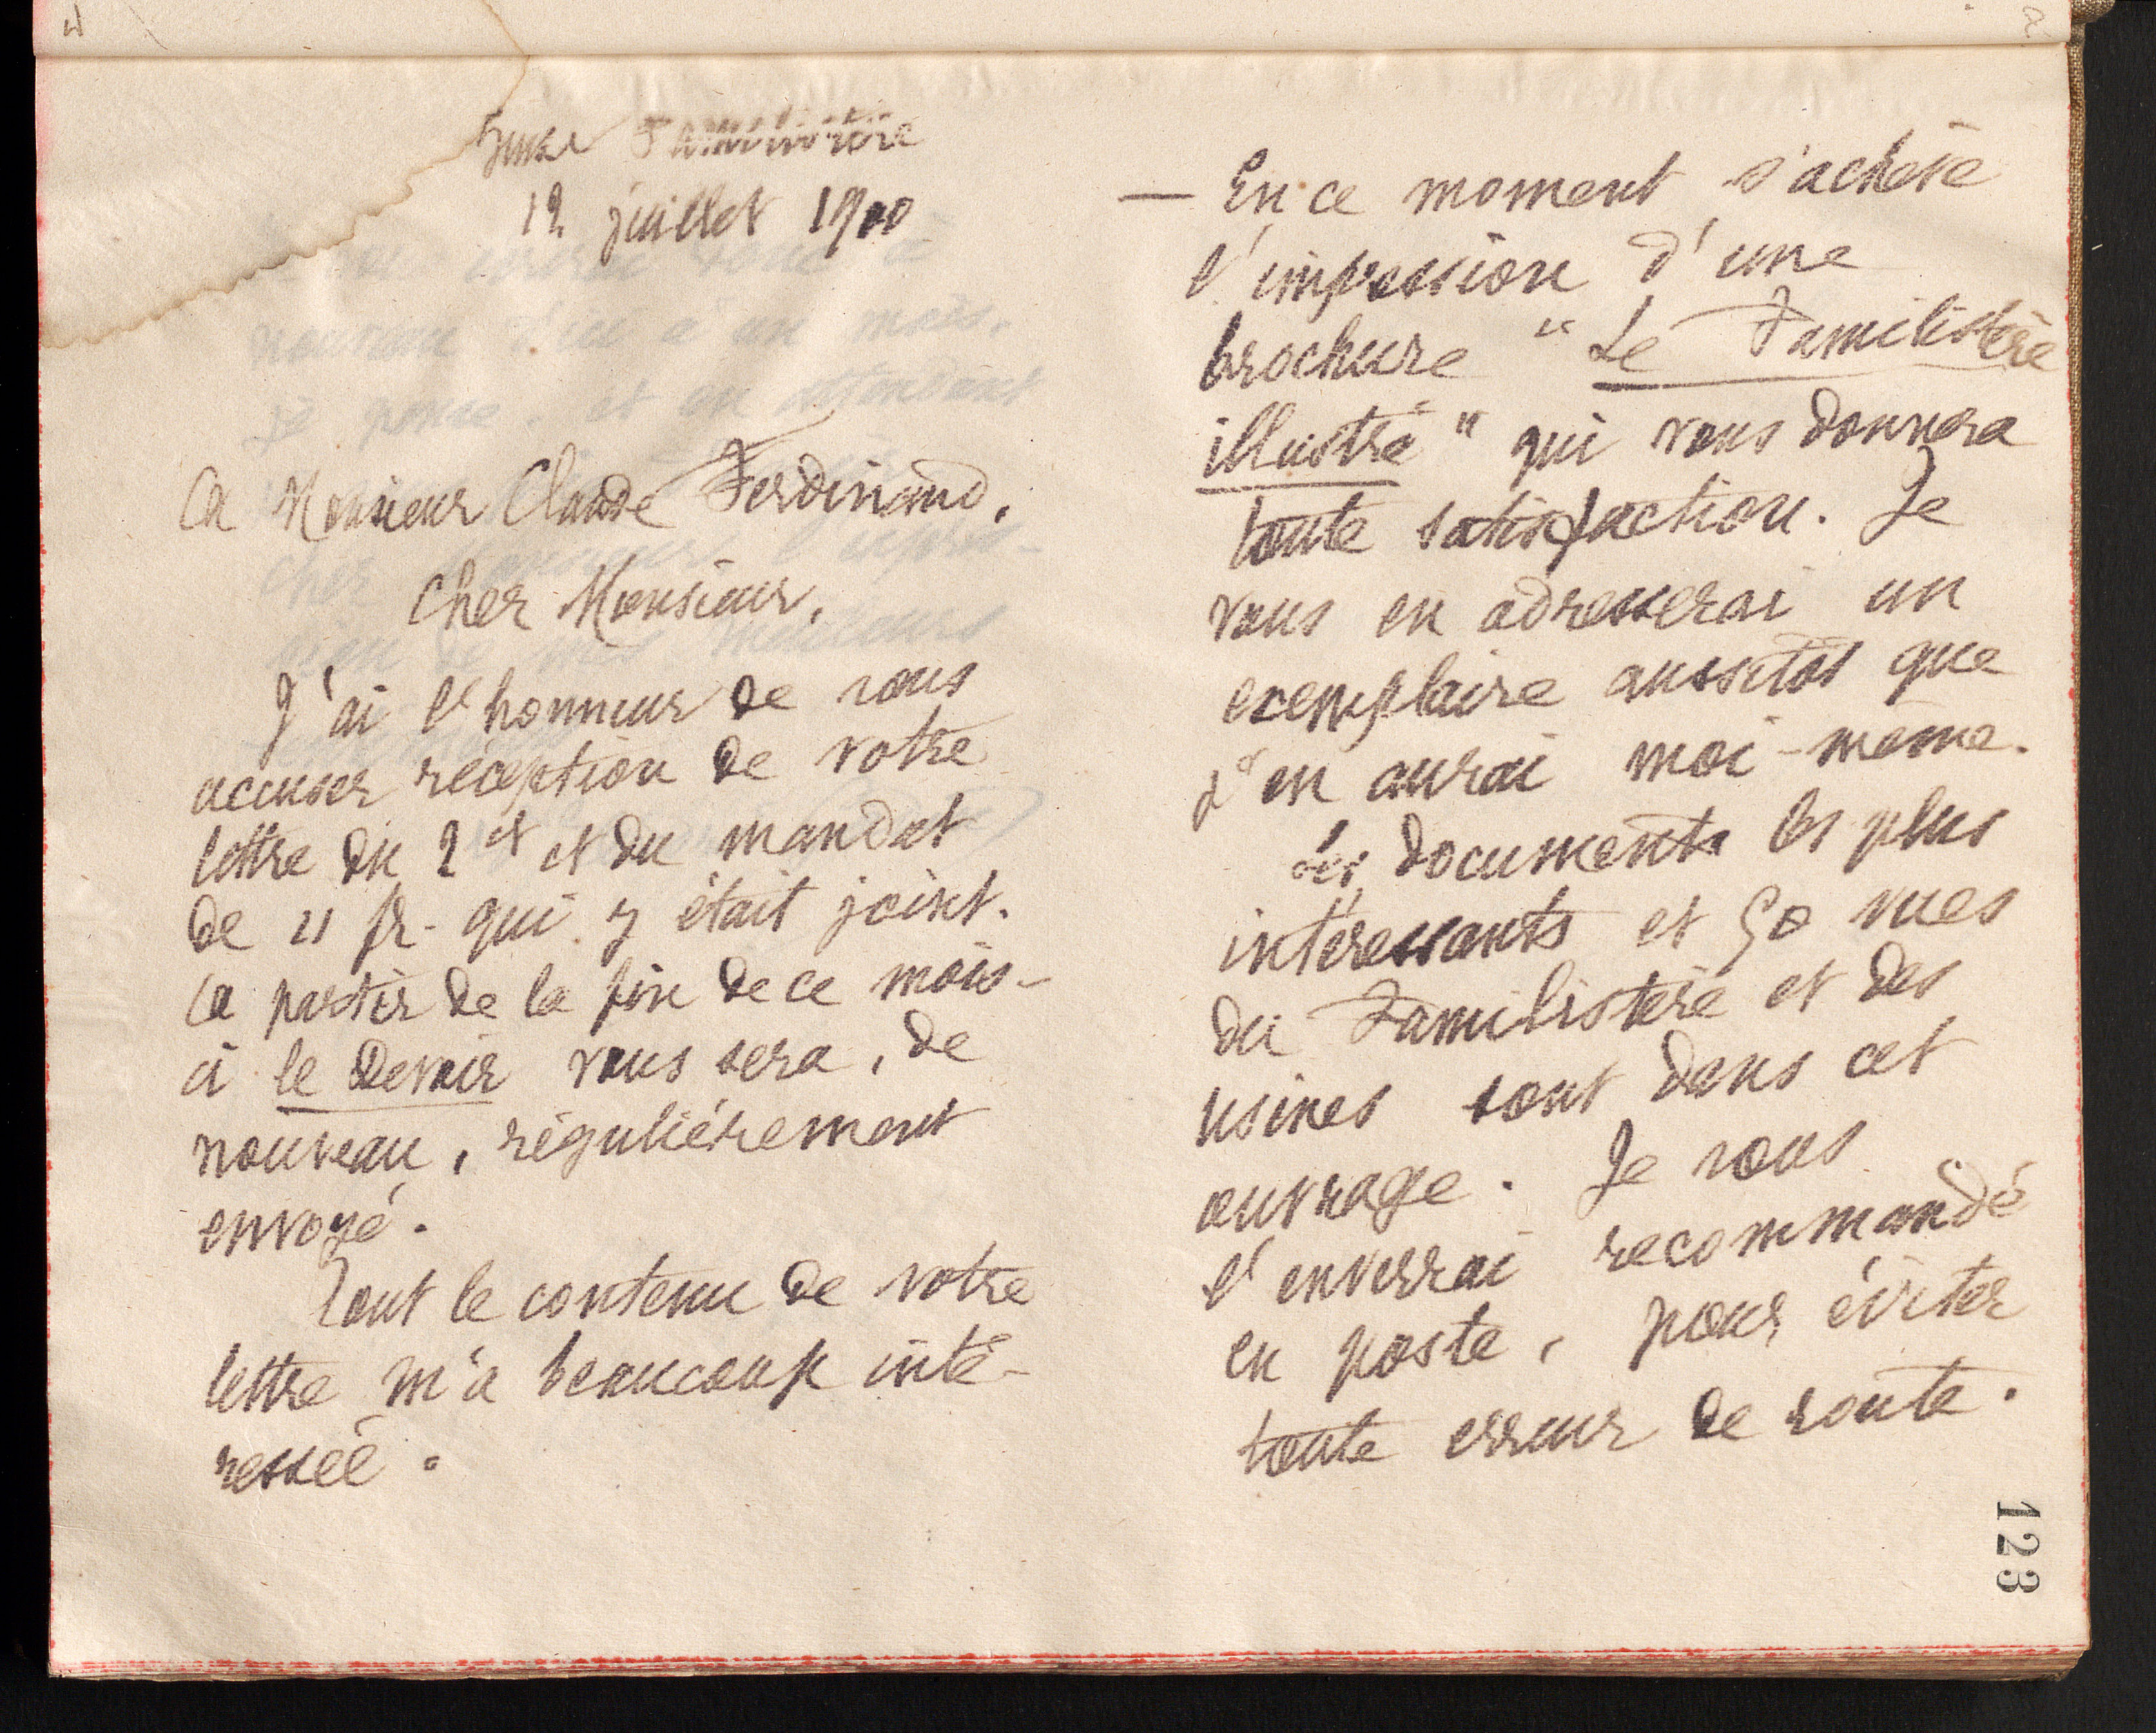 Guise Familistère
12 juillet 1900
A Monsieur Claude Ferdinand.
Cher Monsieur,
J'ai l'honneur de vous
accuser réception de votre
lettre du 2 ct et du mandat
de 11 fr. qui y était joint.
A partir de la fin de ce mois-
ci le Devoir vous sera, de
nouveau, régulièrement
envoyé.
Tout le contenu de votre
lettre m'a beaucoup inté-
ressée.
— En ce moment s'achève
l'impression d'une
brochure "Le Familistère
illustré" qui vous donnera
toute satisfaction. Je
vous en adresserai un
exemplaire aussitôt que
j'en aurai moi-même.
Les documents les plus
intéressants et 50 vues
du Familistère et des
usines sont dans cet
ouvrage. Je vous
l'enverrai recommandé
en poste, pour éviter
toute erreur de route.
123